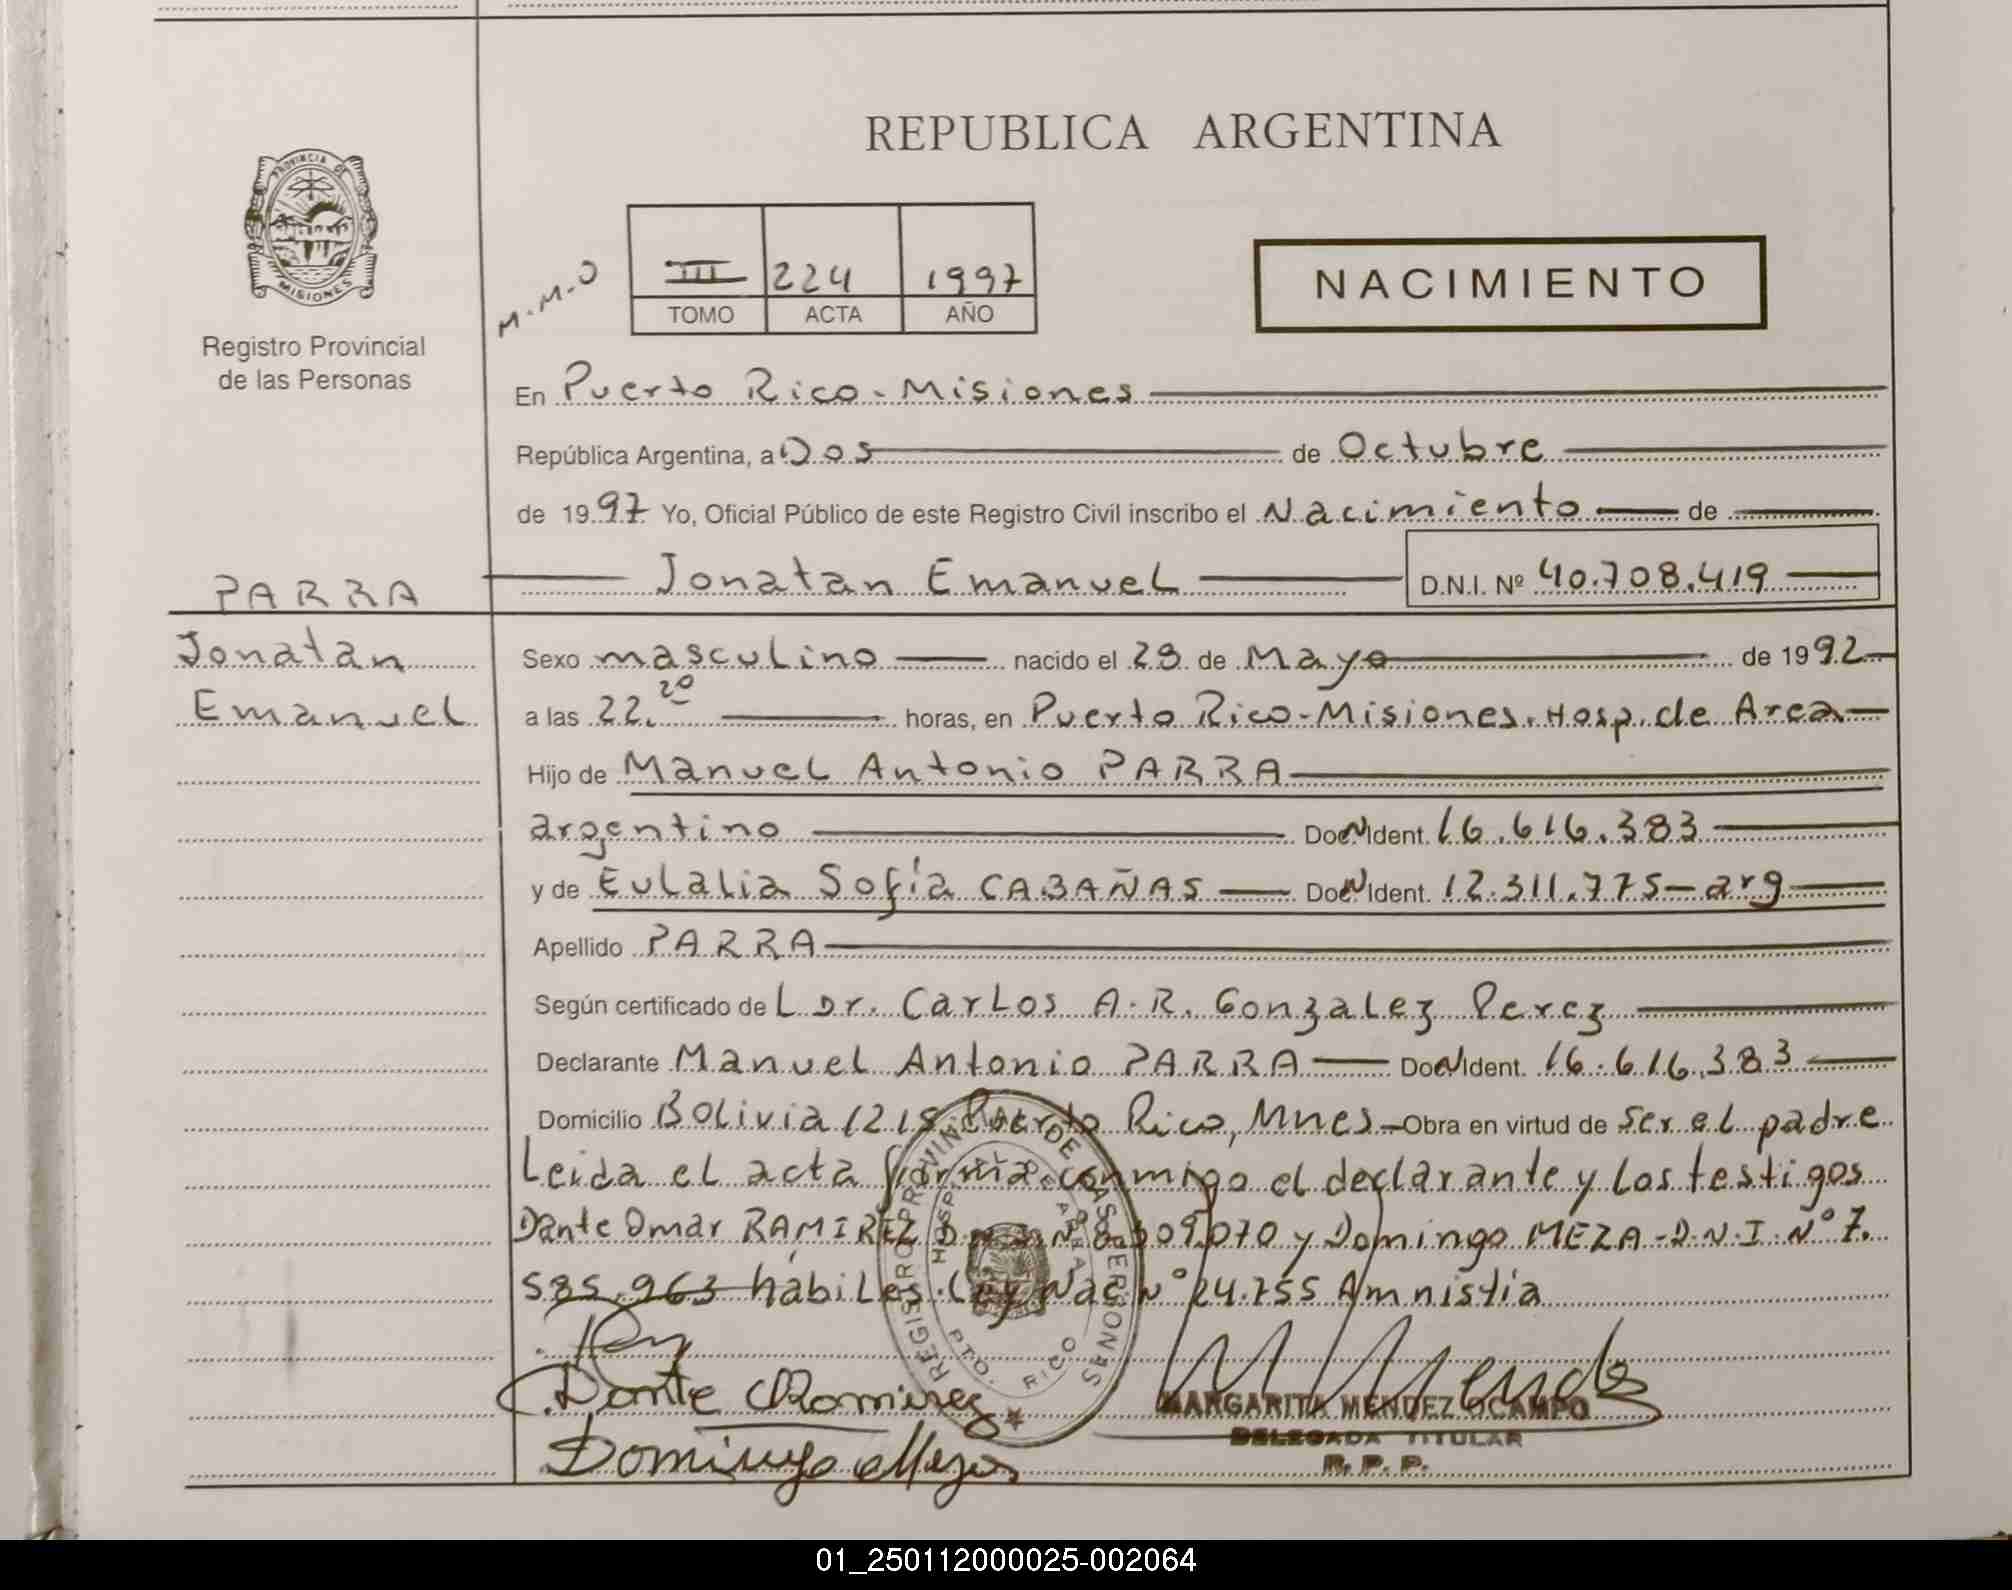 REPUBLICA ARGENTINA
PROVINCIA DE
MISIONES
Registro Provincial
de las Personas
M.M.O
III 224 1997
TOMO ACTA AÑO
NACIMIENTO
En Puerto Rico - Misiones
República Argentina, a Dos de Octubre
de 1997 Yo, Oficial Público de este Registro Civil inscribo el Nacimiento de
Jonatan Emanuel D.N.I. Nº 40.708.419
PARRA
Jonatan
Emanuel
Sexo masculino nacido el 28 de Mayo de 1992
a las 22.20 horas, en Puerto Rico - Misiones. Hosp. de Area
Hijo de Manuel Antonio PARRA
argentino Doc N Ident. 16.616.383
y de Eulalia Sofía CABAÑAS Doc N Ident. 12.311.775 - arg
Apellido PARRA
Según certificado de L Dr. Carlos A. R. Gonzalez Perez
Declarante Manuel Antonio PARRA Doc N Ident. 16.616.383
Domicilio Bolivia 1215 Puerto Rico, Mnes - Obra en virtud de ser el padre
Leida el acta firma conmigo el declarante y los testigos
Dante Omar RAMIREZ D.N.I. Nº 309.070 y Domingo MEZA - D.N.I. Nº 7.
585.963 hábiles. Ley Nac Nº 24.755 Amnistía
REGISTRO PROVINCIAL DE LAS PERSONAS
HOSPITAL DE AREA
PTO. RICO
Dante Ramirez
Domingo Meza
M Mendez
MARGARITA MENDEZ OCAMPO
DELEGADA TITULAR
R. P. P.
01_250112000025-002064